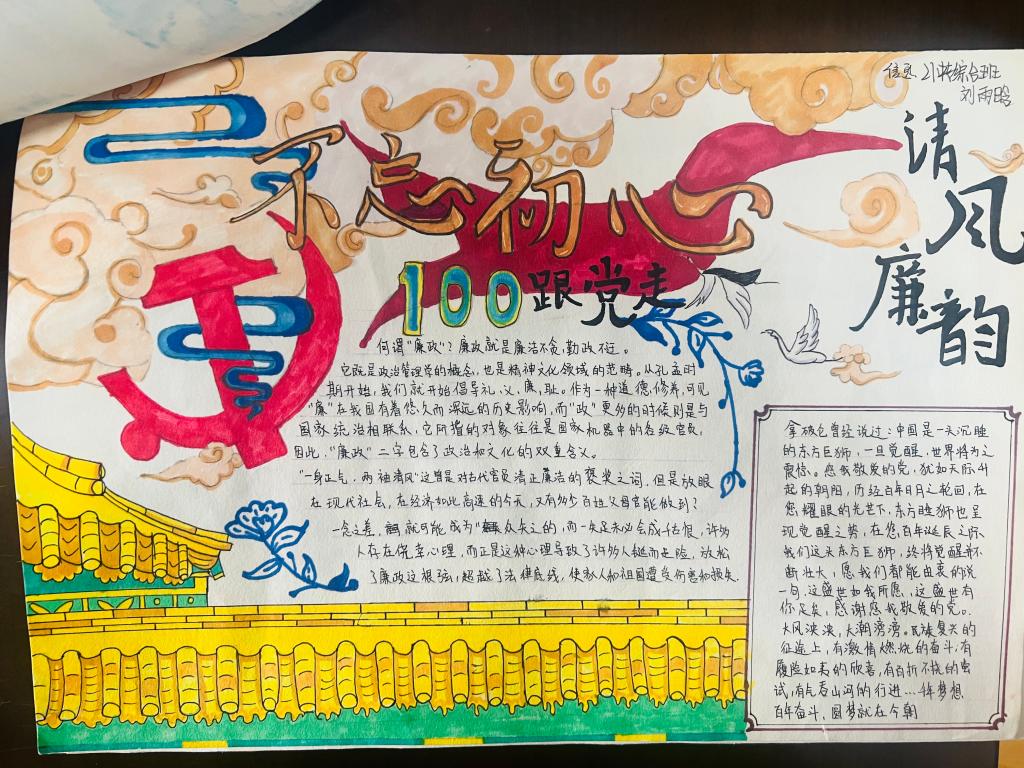 信息21英综合班
刘雨晗
清风廉韵
不忘初心
100跟党走
何谓"廉政"？廉政就是廉洁不贪，勤政不怠。
它既是政治管理学的概念，也是精神文化领域的范畴。从孔孟时
期开始，我们就开始倡导礼、义、廉、耻。作为一种道德修养，可见
"廉"在我国有着悠久而深远的历史影响，而"政"更多的时候则是与
国家统治相联系，它所指的对象往往是国家机器中的各级官员，
因此，"廉政"二字包含了政治和文化的双重含义。
"一身正气，两袖清风"这曾是对古代官员清正廉洁的褒奖之词，但是放眼
在现代社会，在经济如此高速的今天，又有多少百姓父母官能做到？
一念之差，就可能成为众矢之的，而一失足未必会成千古恨，许多
人存在侥幸心理，而正是这种心理导致了许多人铤而走险，放松
了廉政这根弦，超越了法律底线，使家人和祖国遭受伤害和损失。
拿破仑曾经说过：中国是一头沉睡
的东方巨狮，一旦觉醒，世界将为之
震惊。您我敬爱的党，犹如天际升
起的朝阳，历经百年日月之轮回，在
您耀眼的光芒下，东方睡狮也呈
现觉醒之势，在您百年诞辰之际
我们这头东方巨狮，终将觉醒并不
断壮大，愿我们都能由衷的说
一句，这盛世如我所愿，这盛世有
你足矣，感谢您我敬爱的党。
大风泱泱，大潮滂滂。民族复兴的
征途上，有激情燃烧的奋斗，有
履险如夷的欣喜，有百折不挠的尝
试，有气吞山河的行进…年梦想，
百年奋斗，圆梦就在今朝